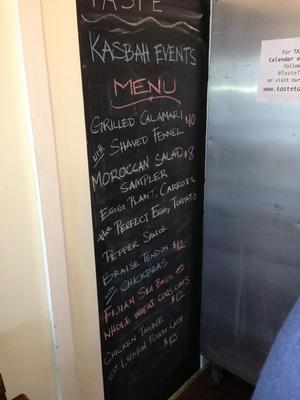 TASTE
KASBAH EVENTS
MENU
GRILLED CALAMARI $10
with SHAVED FENNEL
MOROCCAN SALAD $8
SAMPLER
EGG PLANT, CARROTS
the PERFECT EGG, TOMATO
PEPPER SALAD
BRAISE TENDON $12
with CHICKPEAS
FIJIAN SEA BASS
WHOLE WHEAT COUS COUS
$12
CHICKEN TAGINE
with LEMON POTATO CAKE
$13
For TA
Calendar o
follow
@TasteT
or visit our
www.tasteta